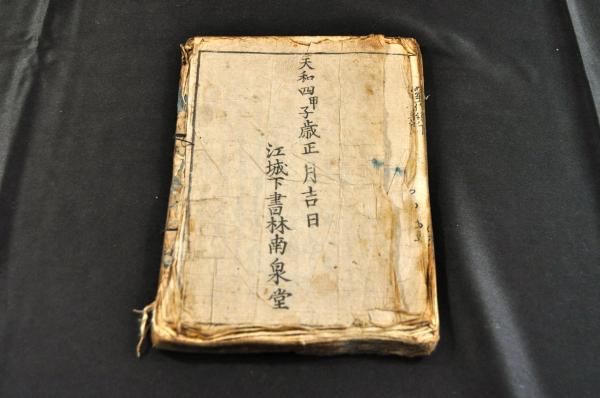 天和四甲子歳正月吉日
江城下書林南泉堂